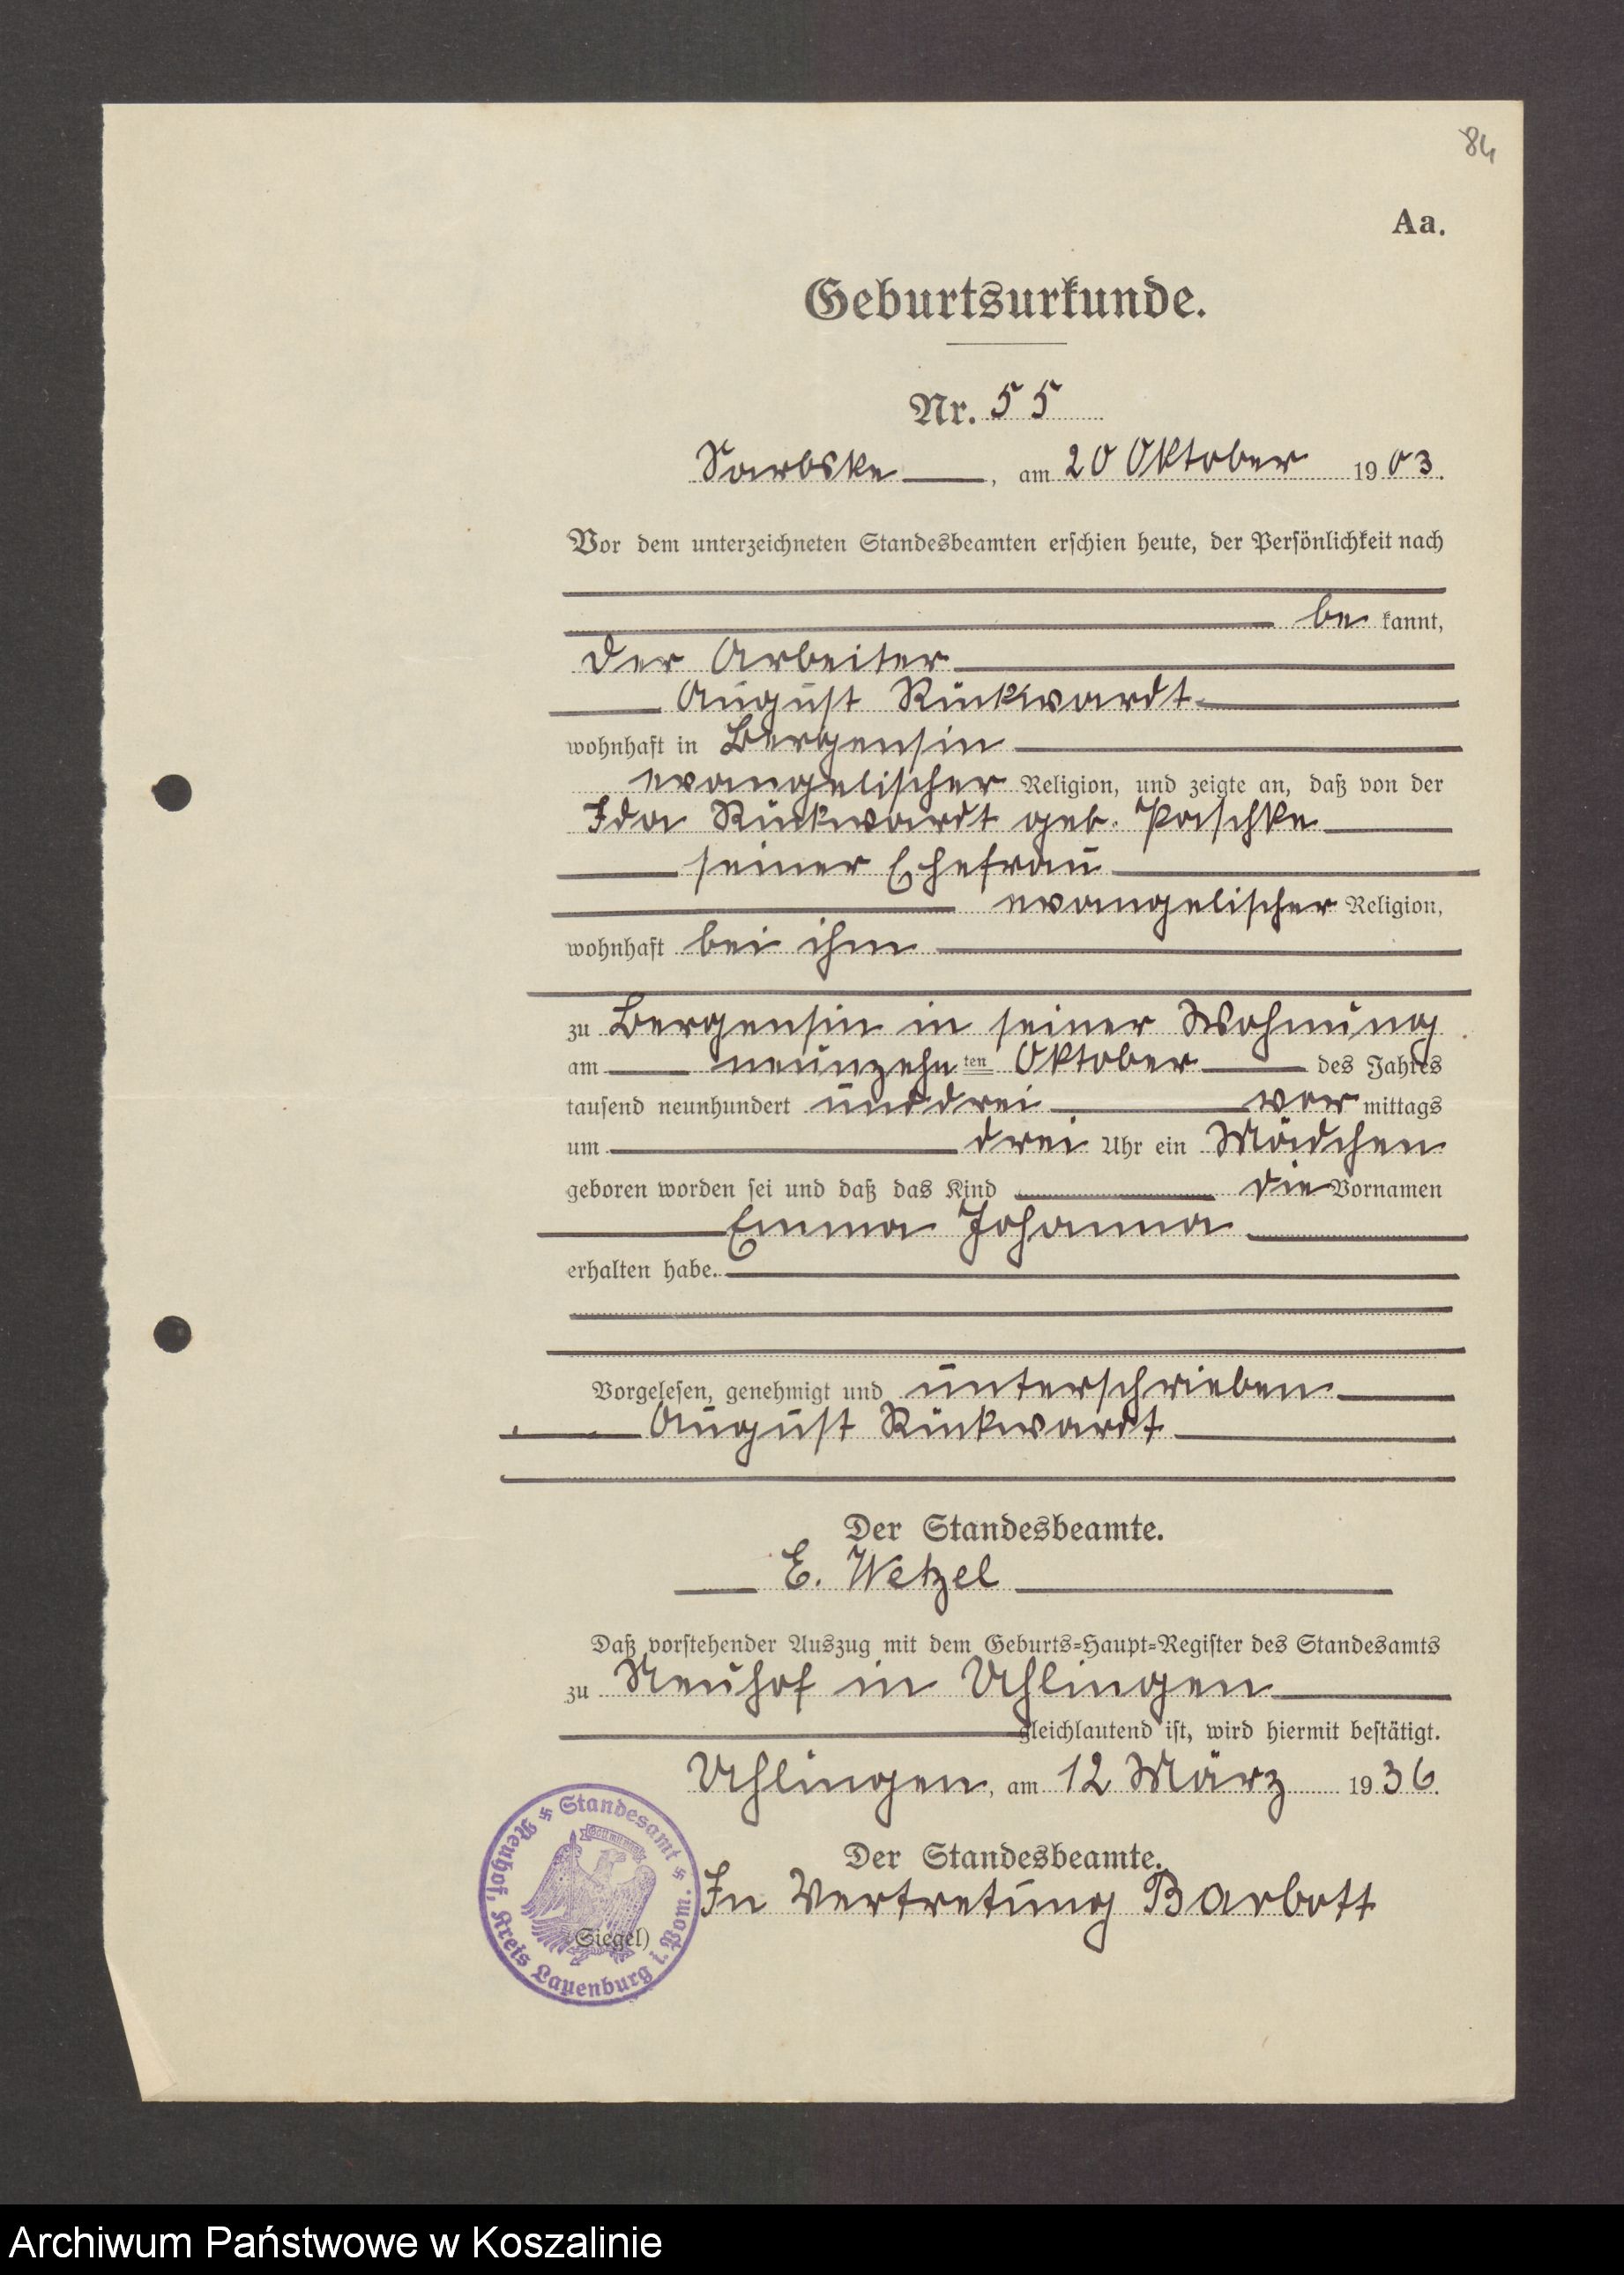 84
Aa.
Geburtsurkunde.
Nr. 55
Sarbske, am 20 Oktober 1903.
Vor dem unterzeichneten Standesbeamten erschien heute, der Persönlichkeit nach
be kannt,
der Arbeiter
August Rückwardt
wohnhaft in Bergensin
evangelischer Religion, und zeigte an, daß von der
Ida Rückwardt geb. Paschke
seiner Ehefrau
evangelischer Religion,
wohnhaft bei ihm
zu Bergensin in seiner Wohnung
am neunzehn ten Oktober des Jahres
tausend neunhundert und drei vor mittags
um drei Uhr ein Mädchen
geboren worden sei und daß das Kind die Vornamen
Emma Johanna
erhalten habe.
Vorgelesen, genehmigt und unterschrieben
August Rückwardt
Der Standesbeamte.
E. Wetzel
Daß vorstehender Auszug mit dem Geburts-Haupt-Register des Standesamts
zu Neuhof in Uhlingen
gleichlautend ist, wird hiermit bestätigt.
Uhlingen, am 12 März 1936.
Der Standesbeamte.
In Vertretung Barbott
(Siegel)
Standesamt Neuhof, Kreis Lauenburg i. Pom.
Archiwum Państwowe w Koszalinie